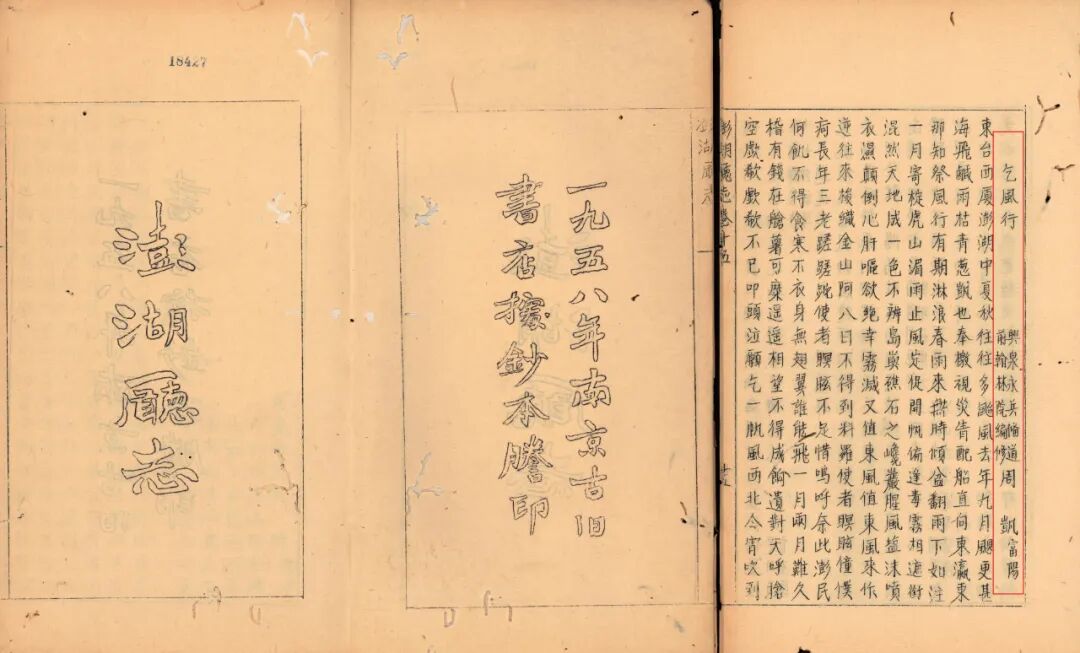 18427
澎湖廳志
一九五八年南京古旧
書店據鈔本謄印
澎湖廳志卷十五
乞風行
興泉永兵備道周 凱富陽
前翰林院編修
東台西厦澎湖中夏秋往往多颱風去年九月颶更甚
海飛鹹雨枯青葱凱也奉檄視災眚配船直向東瀛東
那知祭風行有期淋浪春雨來無時傾盆翻雨下如注
一月寄椗虎山湄雨止風定促開帆偏逢毒霧相遮銜
混然天地成一色不辨島與礁石之巉巖腥風鹽沫噴
衣濕顛倒心肝嘔欲絶幸霧減又值東風值東風來作
逆往來梭織金山阿八日不得到料羅使者瞑眩僮僕
疴長年三老蹉蹉跎使者瞑眩不足惜嗚呼奈此澎民
何飢不得食寒不衣身無翅翼誰能飛一月兩月難久
稽有錢在艙薯可糜遥遥相望不得成餉遺對天呼搶
空歔欷歔欷不已叩頭泣願乞一帆風西北今宵吹到